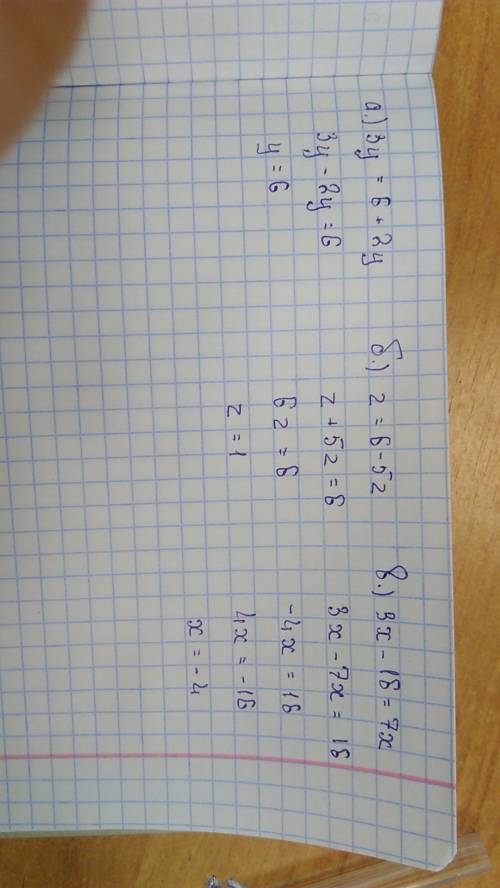 а.) 3y = 6 + 2y
3y - 2y = 6
y = 6
б.) z = 6 - 5z
z + 5z = 6
6z = 6
z = 1
в.) 3x - 16 = 7x
3x - 7x = 16
-4x = 16
4x = -16
x = -4